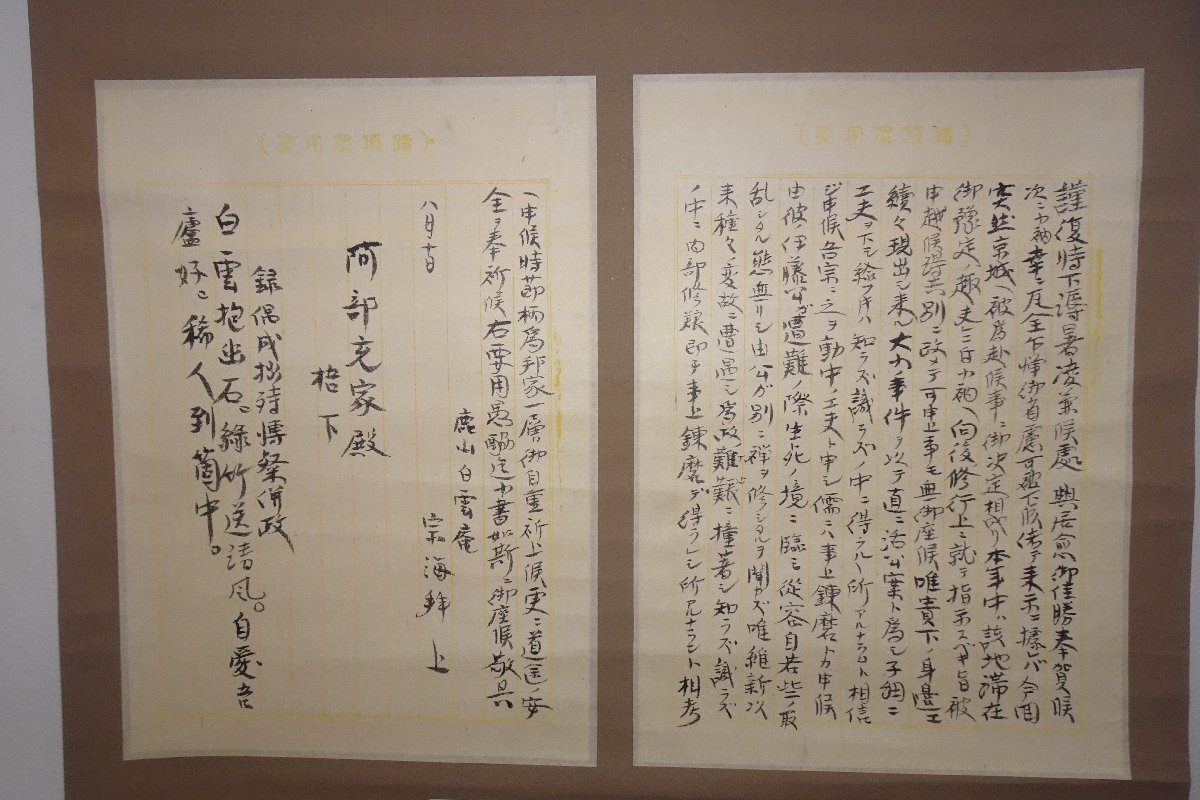 謹復時下溽暑凌兼候處興居愈御佳勝奉賀候
次ニ小衲幸ニ瓦全乍憚御省慮可被下候偖テ来示ニ據レバ今回
突然京城ヘ被為赴候事ニ御決定相成リ本年中ハ該地滞在
御豫定ノ趣夫ニ付小衲ヘ向後修行上ニ就テ指示スベキ旨被
申越候得共別ニ改メテ可申上事モ無御座候唯貴下ノ身邊エ
續々現出シ来ル大小事件ヲ以テ直ニ活公案ト為シ子細ニ
工夫ヲ下シ給フトキハ知ラズ識ラズノ中ニ得ラルヽ所アルナラムト相信
ジ申候吾宗ニ之ヲ動中ノ工夫ト申シ儒ニハ事上錬磨トカ申候
由彼ノ伊藤公ガ遭難ノ際生死ノ境ニ臨ミ従容自若些ノ取
乱シタル態無リシ由公ガ別ニ禅ヲ修シタルヲ聞カズ唯維新以
来種々ノ変故ニ遭遇シ為政難艱ニ撞著シ知ラズ識ラズ
ノ中ニ内部修養即チ事上錬磨デ得ラレシ所アルナラント相考
ヘ申候時節柄為邦家一層御自重祈上候更ニ道途ノ安
全ヲ奉祈候右要用愚酬迄小書如斯ニ御座候敬具
鹿山白雲庵
八月十日
宗海拜上
阿部充家殿
梧下
録偶成拙詩博粲併政
白雲抱幽石。緑竹送清風。自愛吾
廬好。稀人到箇中。